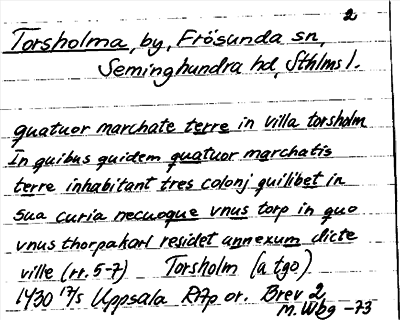 2
Torsholma, by, Frösunda sn,
Seminghundra hd, Sthlms l.
quatuor marchate terre in villa torsholm
In quibus quidem quatuor marchatis
terre inhabitant tres colonj quilibet in
sua curia necuoque vnus torp in quo
vnus thorpakarl residet annexum dicte
ville (rr. 5-7) Torsholm (a tgo)
1430 17/5 Uppsala RAp or. Brev 2
M. Wbg -73